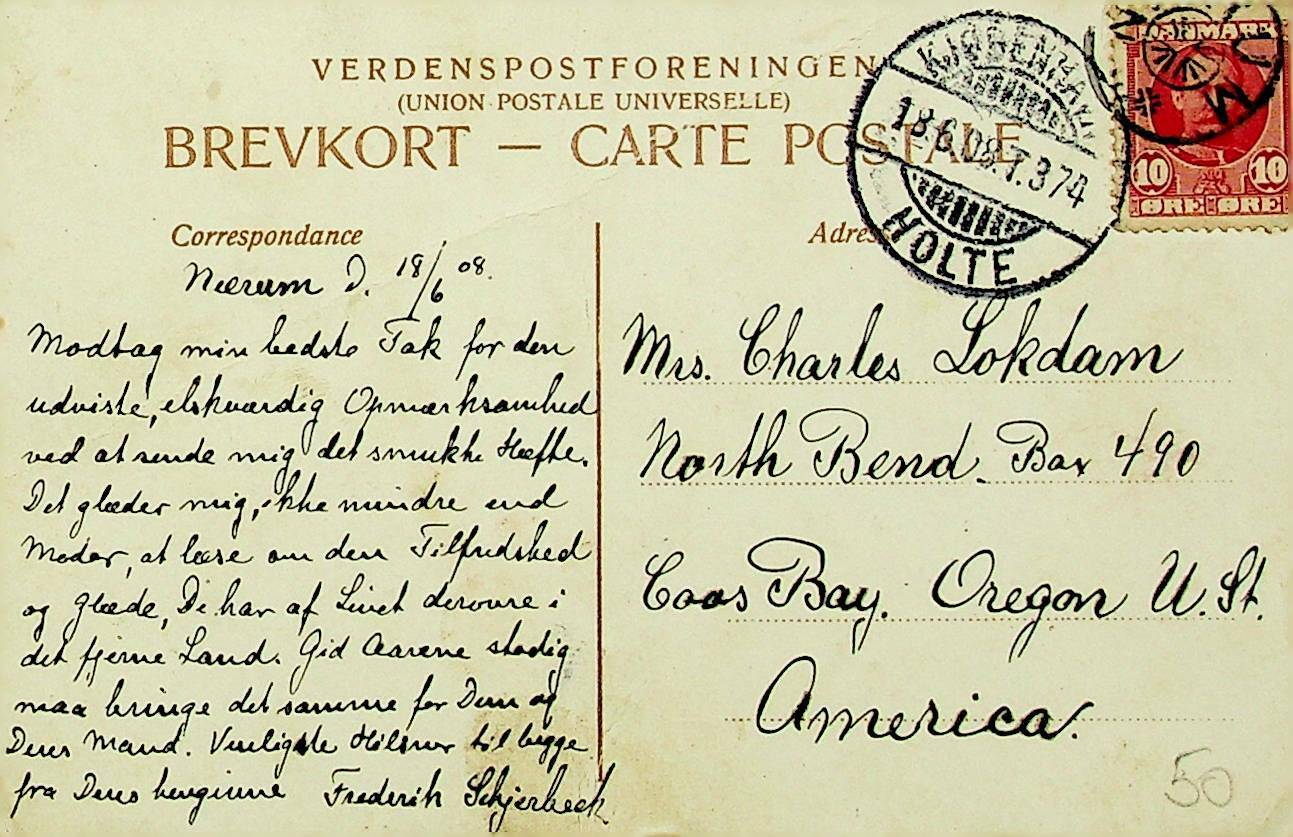 VERDENSPOSTFORENINGEN
(UNION POSTALE UNIVERSELLE)
BREVKORT — CARTE POSTALE
KJØBENHAVN
18.6.08.T.374
HOLTE
DANMARK
10 10
ØRE ØRE
Correspondance
Nærum D. 18/6 08.
Modtag min bedste Tak for den
udviste, elskværdig Opmærksomhed
ved at sende mig det smukke Hæfte.
Det glæder mig, ikke mindre end
Moder, at læse om den Tilfredshed
og Glæde, De har af Livet derovre i
det fjerne Land. Gid Aarene stadig
maa bringe det samme for Dem og
Deres Mand. Venligste Hilsner til begge
fra Deres hengivne Frederik Schjerbeck
Adresse
Mrs. Charles Lokdam
North Bend. Box 490
Coos Bay. Oregon U. St.
America.
50